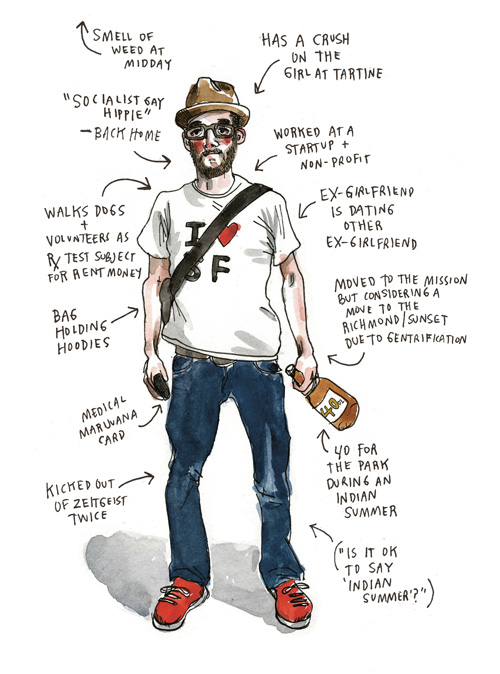 SMELL OF
WEED AT
MIDDAY
HAS A CRUSH
ON THE
GIRL AT TARTINE
"SOCIALIST GAY
HIPPIE"
—BACK HOME
WORKED AT A
STARTUP +
NON-PROFIT
WALKS DOGS
+
VOLUNTEERS AS
RX TEST SUBJECT
FOR RENT MONEY
EX-GIRLFRIEND
IS DATING
OTHER
EX-GIRLFRIEND
I ♥
SF
BAG
HOLDING
HOODIES
MOVED TO THE MISSION
BUT CONSIDERING A
MOVE TO THE
RICHMOND/SUNSET
DUE TO GENTRIFICATION
MEDICAL
MARIJUANA
CARD
40z
40 FOR
THE PARK
DURING AN
INDIAN
SUMMER
KICKED OUT
OF ZEITGEIST
TWICE
("IS IT OK
TO SAY
'INDIAN
SUMMER'?")